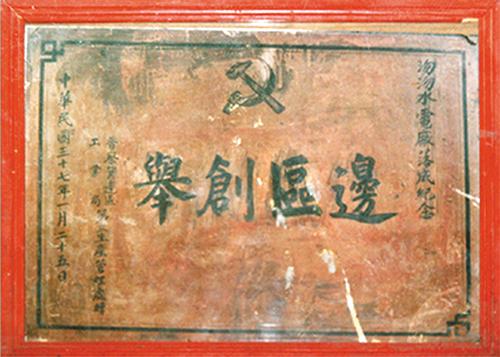 沕沕水電廠落成紀念
邊區創舉
晉察冀邊區
工業局
生產管理處贈
中華民國三十七年一月二十五日